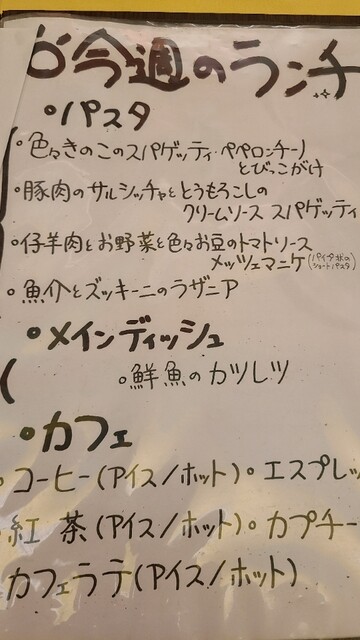 今週のランチ
・パスタ
・色々きのこのスパゲッティ・ペペロンチーノ
とびっこがけ
・豚肉のサルシッチャととうもろこしの
クリームソース スパゲッティ
・仔羊肉とお野菜と色々お豆のトマトソース
メッツェマニケ(パイプ状のショートパスタ)
・魚介とズッキーニのラザニア
・メインディッシュ
・鮮魚のカツレツ
・カフェ
・コーヒー(アイス/ホット)・エスプレッ
・紅 茶(アイス/ホット)・カプチー
カフェラテ(アイス/ホット)